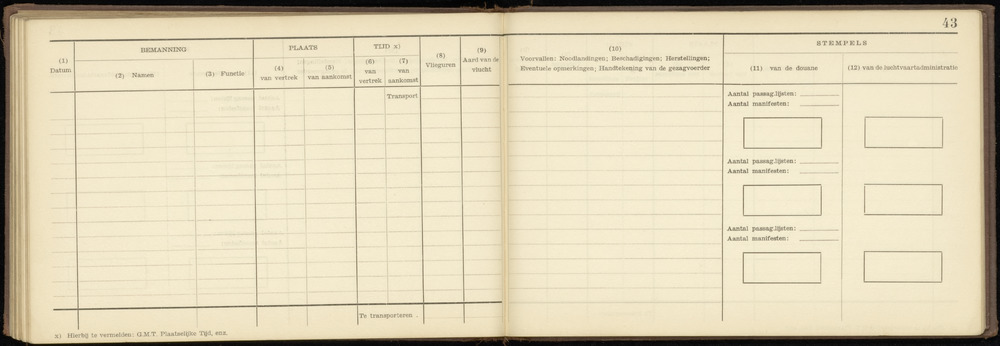 43
BEMANNING
PLAATS
TIJD x)
STEMPELS
(1)
Datum
(2) Namen
(3) Functie
(4)
van vertrek
(5)
van aankomst
(6)
van
vertrek
(7)
van
aankomst
(8)
Vlieguren
(9)
Aard van de
vlucht
(10)
Voorvallen: Noodlandingen; Beschadigingen; Herstellingen;
Eventuele opmerkingen; Handtekening van de gezagvoerder
(11) van de douane
(12) van de luchtvaartadministratie
Transport
Aantal passag.lijsten:
Aantal manifesten:
Aantal passag.lijsten:
Aantal manifesten:
Aantal passag.lijsten:
Aantal manifesten:
Te transporteren .
x) Hierbij te vermelden: G.M.T. Plaatselijke Tijd, enz.